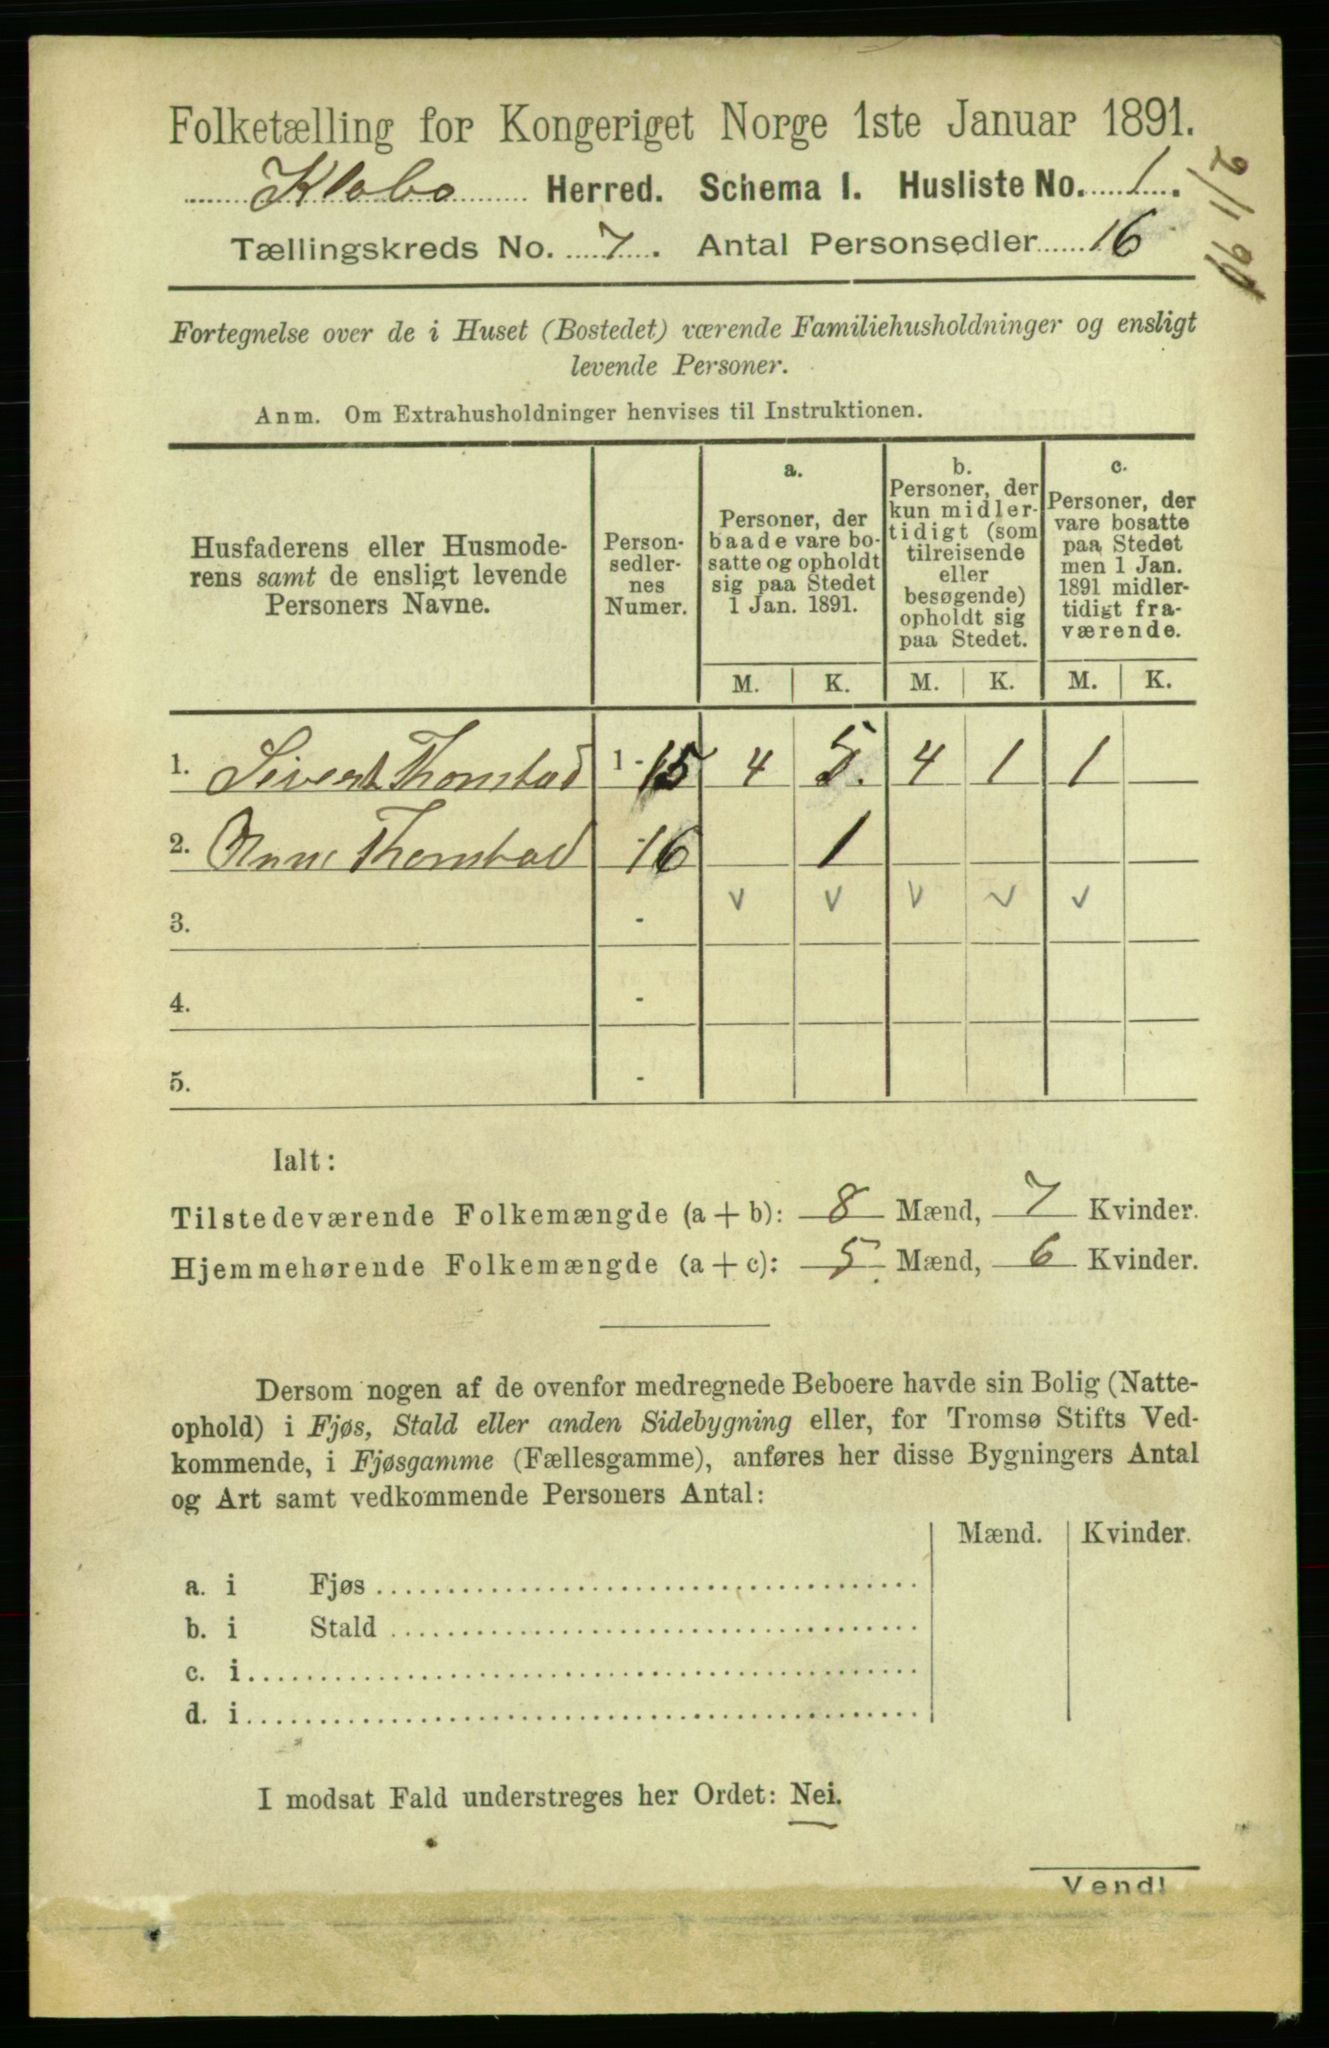 Folketælling for Kongeriget Norge 1ste Januar 1891.
Klæbo Herred. Schema I. Husliste No. 1.
Tællingskreds No. 7. Antal Personsedler 16
2/1 91
Fortegnelse over de i Huset (Bostedet) værende Familiehusholdninger og ensligt
levende Personer.
Anm. Om Extrahusholdninger henvises til Instruktionen.
Husfaderens eller Husmode-
rens samt de ensligt levende
Personers Navne.
Person-
sedler-
nes
Numer.
a.
Personer, der
baade vare bo-
satte og opholdt
sig paa Stedet
1 Jan. 1891.
b.
Personer, der
kun midler-
tidigt (som
tilreisende
eller
besøgende)
opholdt sig
paa Stedet.
c.
Personer, der
vare bosatte
paa Stedet
men 1 Jan.
1891 midler-
tidigt fra-
værende.
M. K. M. K. M. K.
1. Sivert Thonstad 1-15 4 5. 4 1 1
2. Anne Thonstad -16 1
3. - v v v v v
4. -
5. -
Ialt:
Tilstedeværende Folkemængde (a + b): 8 Mænd, 7 Kvinder.
Hjemmehørende Folkemængde (a + c): 5. Mænd, 6 Kvinder.
Dersom nogen af de ovenfor medregnede Beboere havde sin Bolig (Natte-
ophold) i Fjøs, Stald eller anden Sidebygning eller, for Tromsø Stifts Ved-
kommende, i Fjøsgamme (Fællesgamme), anføres her disse Bygningers Antal
og Art samt vedkommende Personers Antal:
Mænd. Kvinder.
a. i Fjøs
b. i Stald
c. i
d. i
I modsat Fald understreges her Ordet: Nei.
Vend!